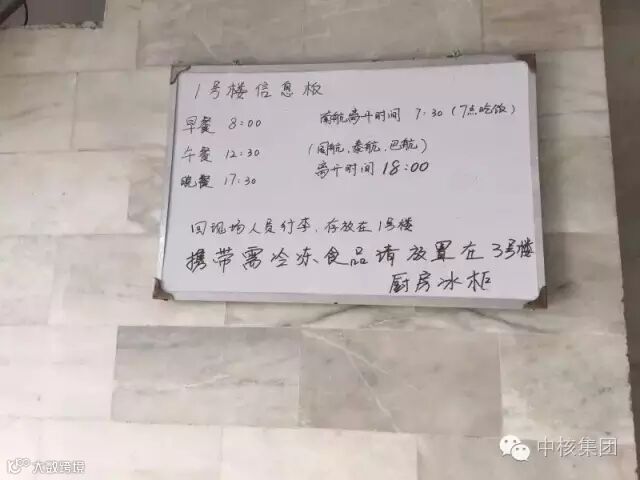 1号楼信息板
早餐 8:00 南航离开时间 7:30 (7点吃饭)
午餐 12:30 (国航、泰航、巴航)
晚餐 17:30 离开时间 18:00
回现场人员行李，存放在1号楼
携带需冷冻食品请放置在3号楼
厨房冰柜
中核集团
大数跨境